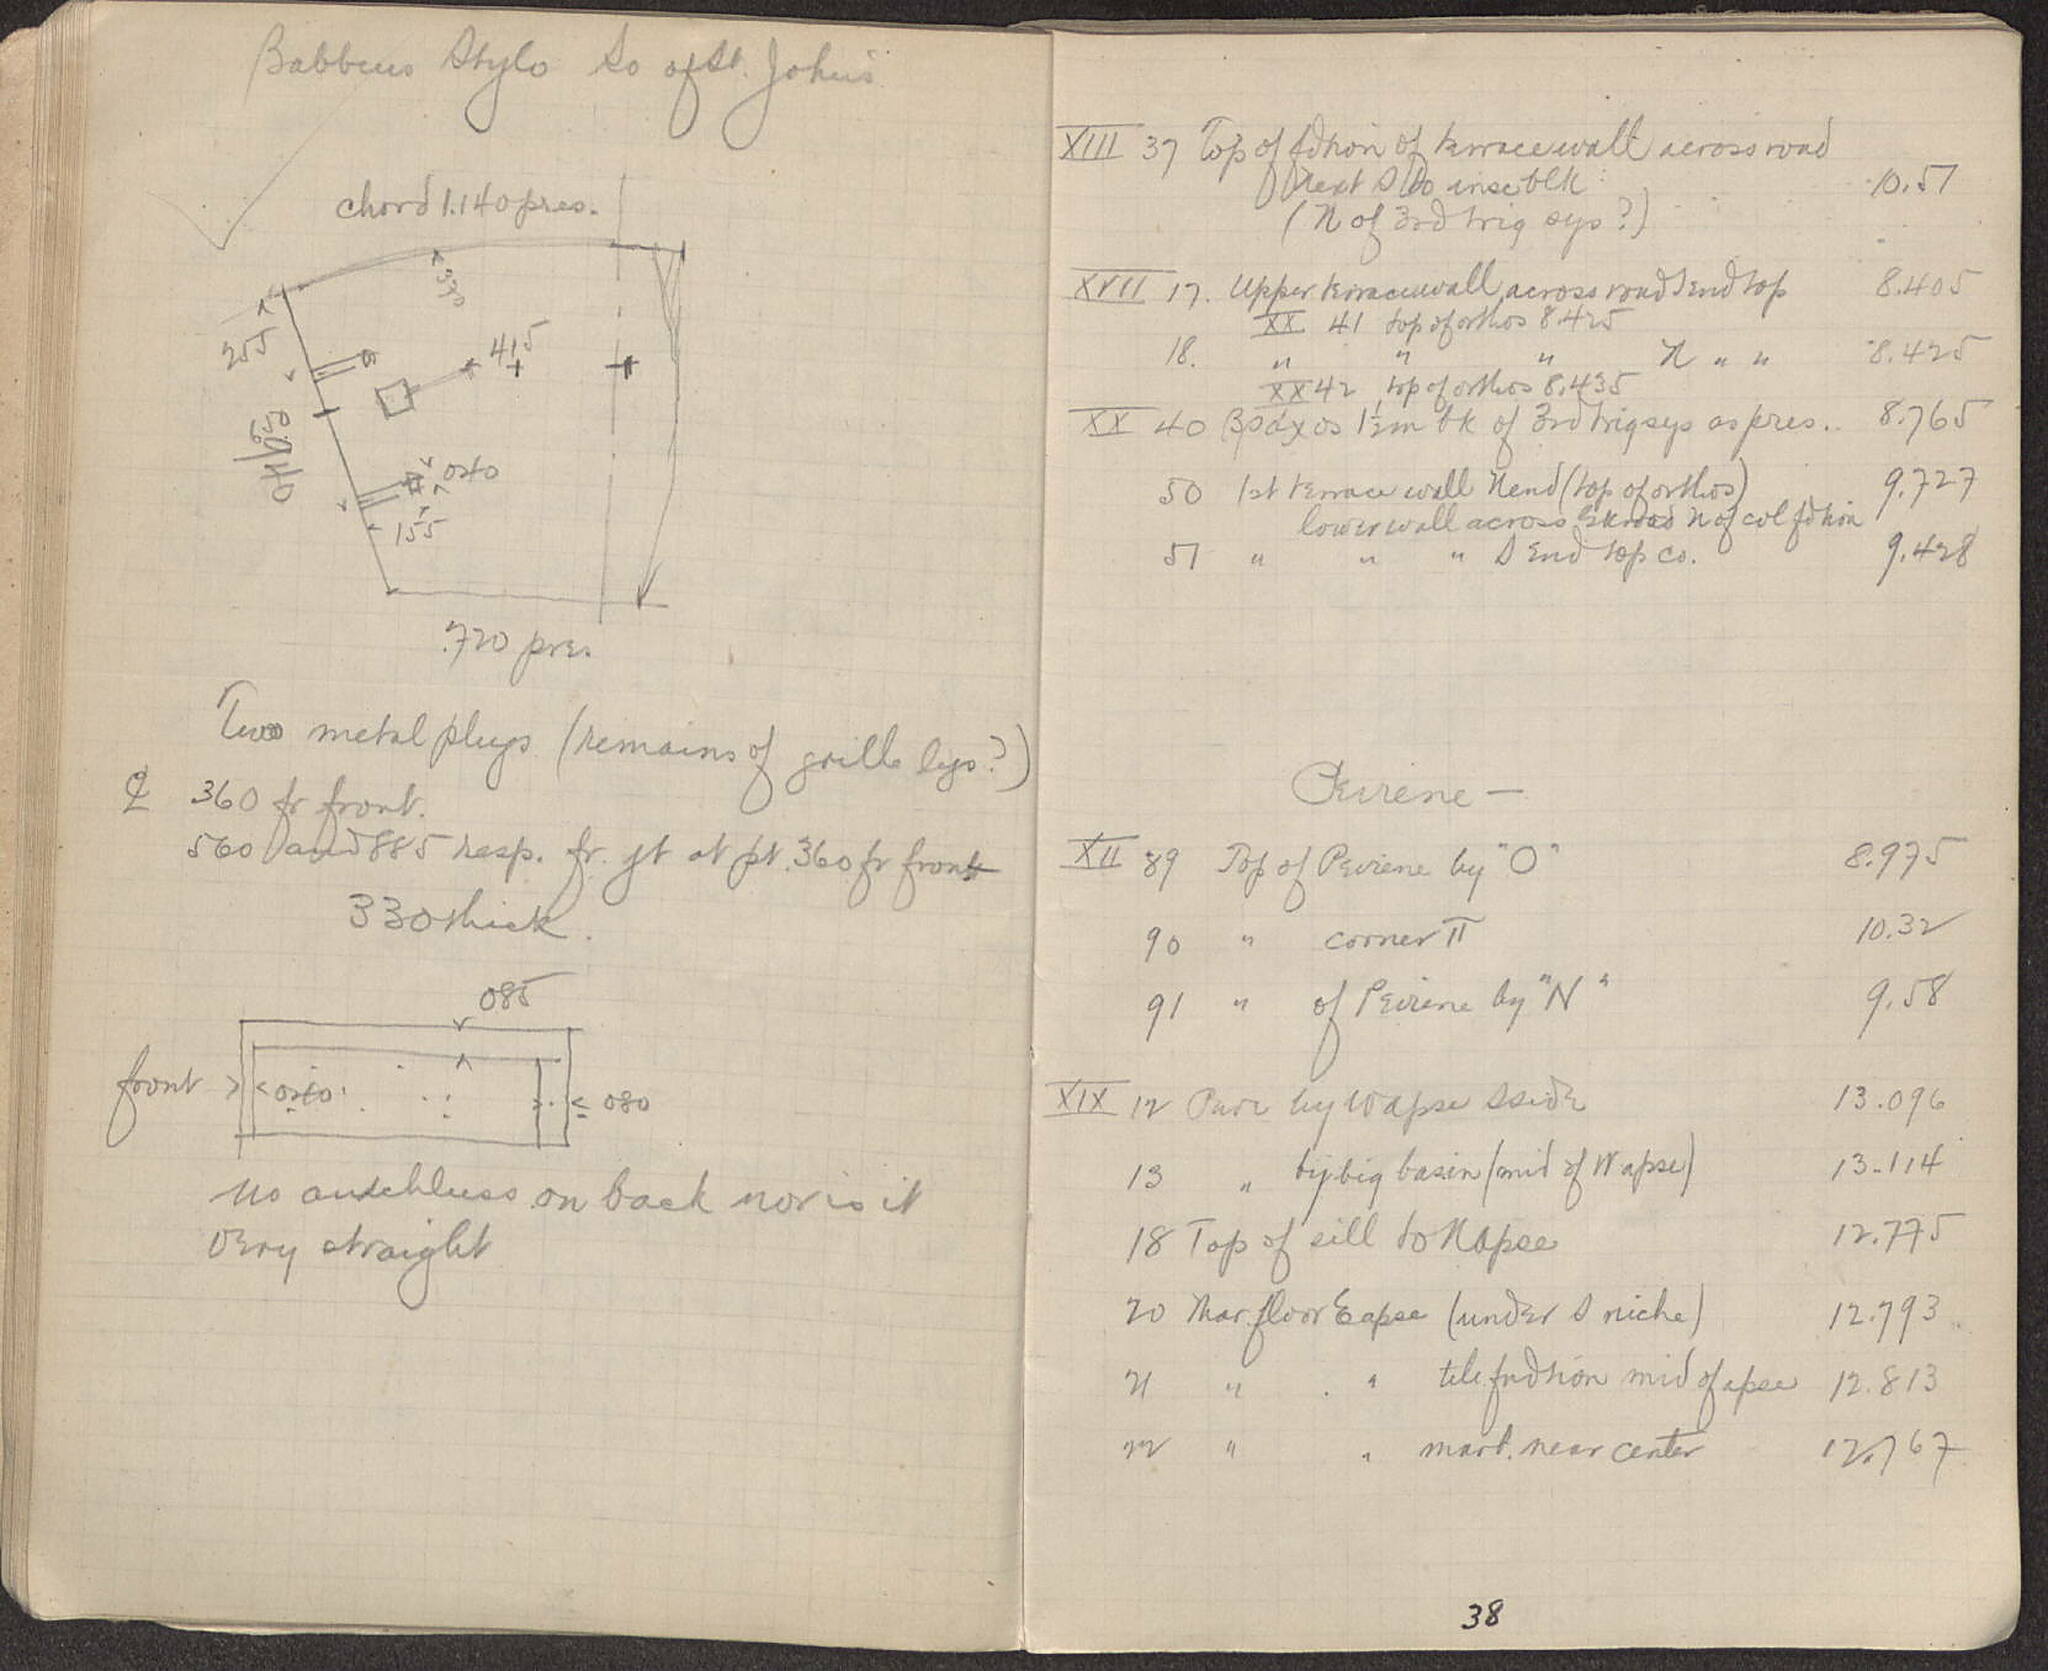 Babbius Stylo So of St. John's
chord 1.140 pres.
330
255
415
650
040
155
.720 pres.
Two metal plugs (remains of grille legs?)
℄ 360 fr front.
560 and 885 resp. fr. jt at pt. 360 fr front
330 thick.
085
front > < 080
no anathluss on back nor is it
very straight
XIII 37 Top of fdtion of terrace wall across road
next S to insc blk 10.51
(N of 3rd trig sys?)
XVII 17. Upper terrace wall across road S End top 8.405
XX 41 top of orthos 8.425
18. " " " N " " 8.425
XX 42 top of orthos 8.435
XX 40 βράχος 1½m bk of 3rd trig sys as pres. . 8.765
50 1st terrace wall N end (top of orthos) 9.727
lower wall across road N of col fdtion
51 " " " S End top co. 9.428
Peirene —
XII 89 Top of Peirene by "O" 8.975
90 " corner π 10.32
91 " of Peirene by "N" 9.58
XIX 12 by W apse S side 13.096
13 " by big basin (mid of W apse) 13.114
18 Top of sill to N apse 12.775
20 Mar. floor E apse (under S niche) 12.793
21 " " tile fndtion mid of apse 12.813
22 " " mart. near center 12.767
38